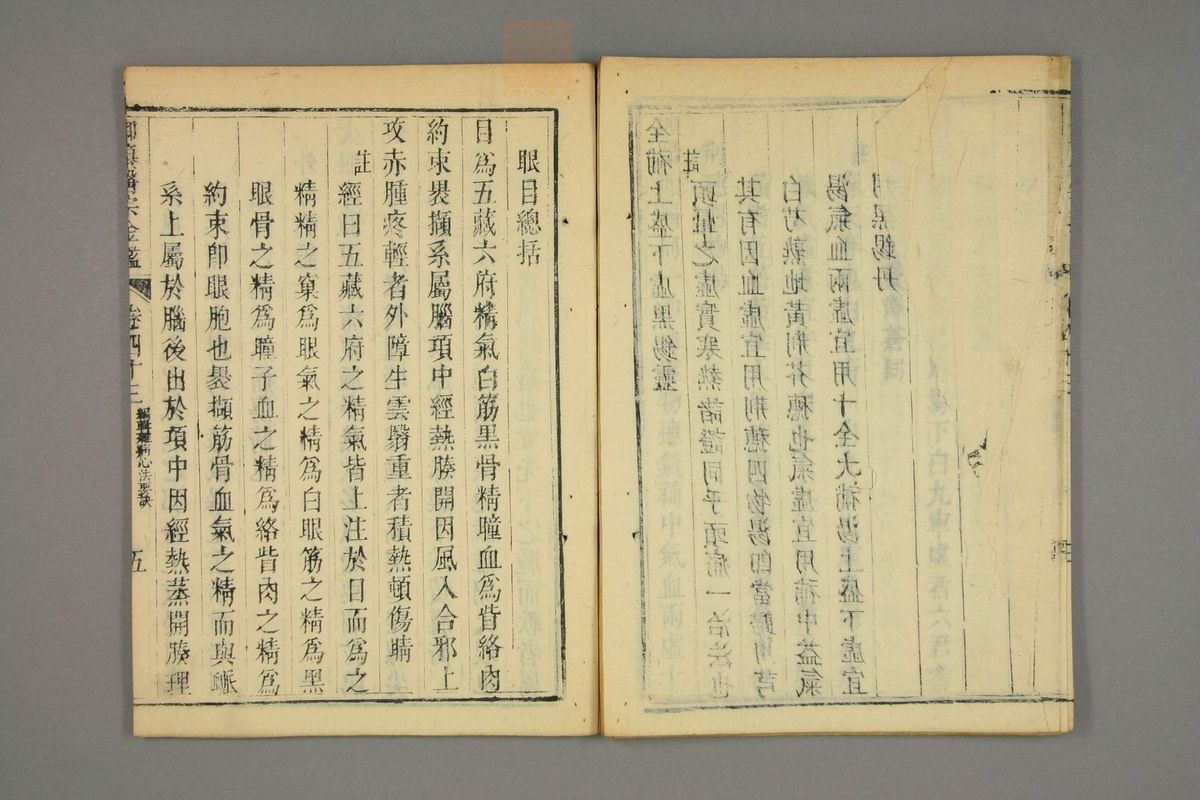 全補上盛下虛黑錫靈
註
頭暈之虛實寒熱諸證同乎頭痛一治法也
其有因血虛宜用荊穗四物湯即當歸川芎
白芍熟地黃荊芥穗也氣虛宜用補中益氣
湯氣血兩虛宜用十全大補湯上盛下虛宜
用黑錫丹
眼目總括
目爲五藏六府精氣白筋黑骨精瞳血爲眥絡肉
約束裹擷系屬腦項中經熱腠開因風入合邪上
攻赤腫疼輕者外障生雲翳重者積熱頓傷睛
註
經曰五藏六府之精氣皆上注於目而爲之
精精之窠爲眼氣之精爲白眼筋之精爲黑
眼骨之精爲瞳子血之精爲絡眥肉之精爲
約束卽眼胞也裹擷筋骨血氣之精而與衇
系上屬於腦後出於項中因經熱蒸開腠理
御纂醫宗金鑑 卷四十三 編輯雜病心法要訣 五